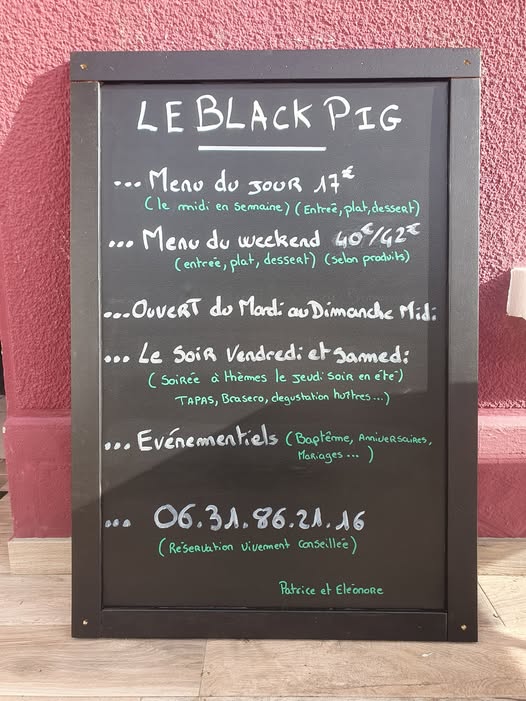 LE BLACK PIG
... Menu du JOUR 17€
(le midi en semaine) (Entreé, plat, dessert)
... Menu du weekend 40€/42€
(entreé, plat, dessert) (selon produits)
... OuveRT du Mardi au Dimanche Midi
... Le SoiR Vendredi et Samedi
(Soirée à thèmes le jeudi soir en été)
TAPAS, Brasero, degustation huîtres...)
... Evénementiels (Baptême, Anniversaires,
Mariages ... )
... 06.31.86.21.16
(Réservation vivement conseillée)
Patrice et Eléonore